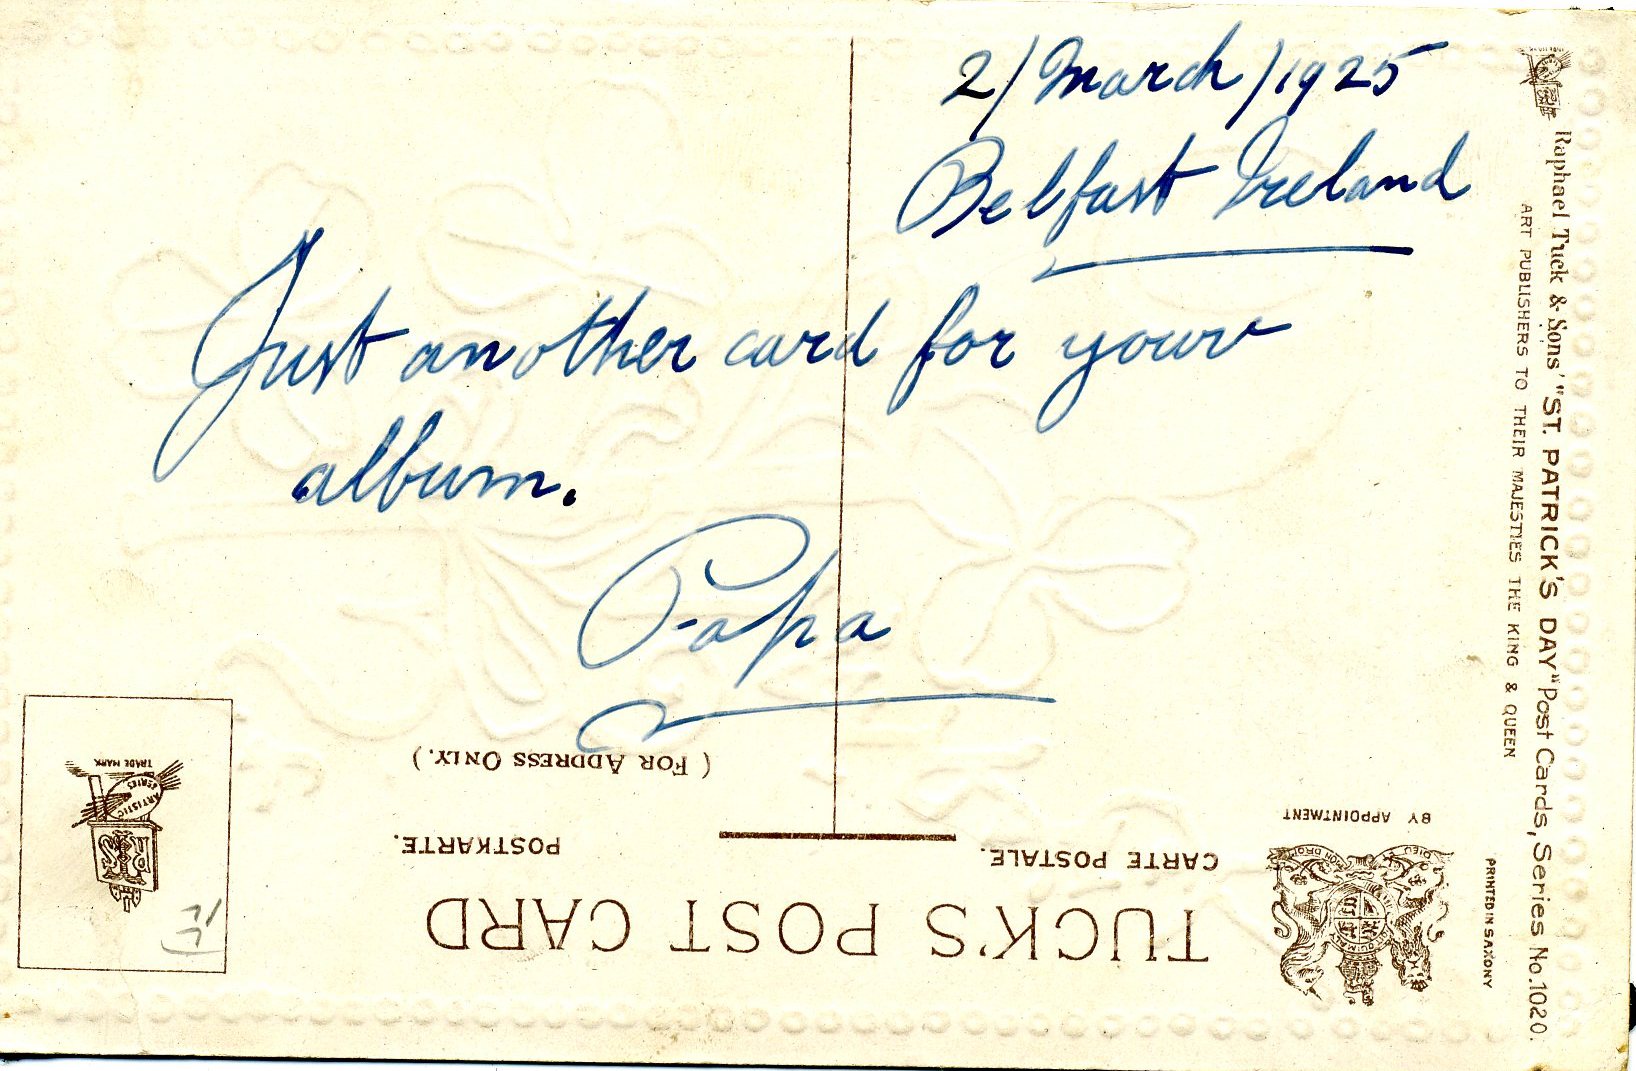 2/March/1925
Belfast Ireland
Just another card for your
album.
Papa
(FOR ADDRESS ONLY.)
POSTKARTE.
CARTE POSTALE.
TUCK'S POST CARD
BY APPOINTMENT
Raphael Tuck & Sons' "ST. PATRICK'S DAY" Post Cards, Series No. 1020.
ART PUBLISHERS TO THEIR MAJESTIES THE KING & QUEEN
PRINTED IN SAXONY
TRADE MARK
ARTISTIC
SERIES